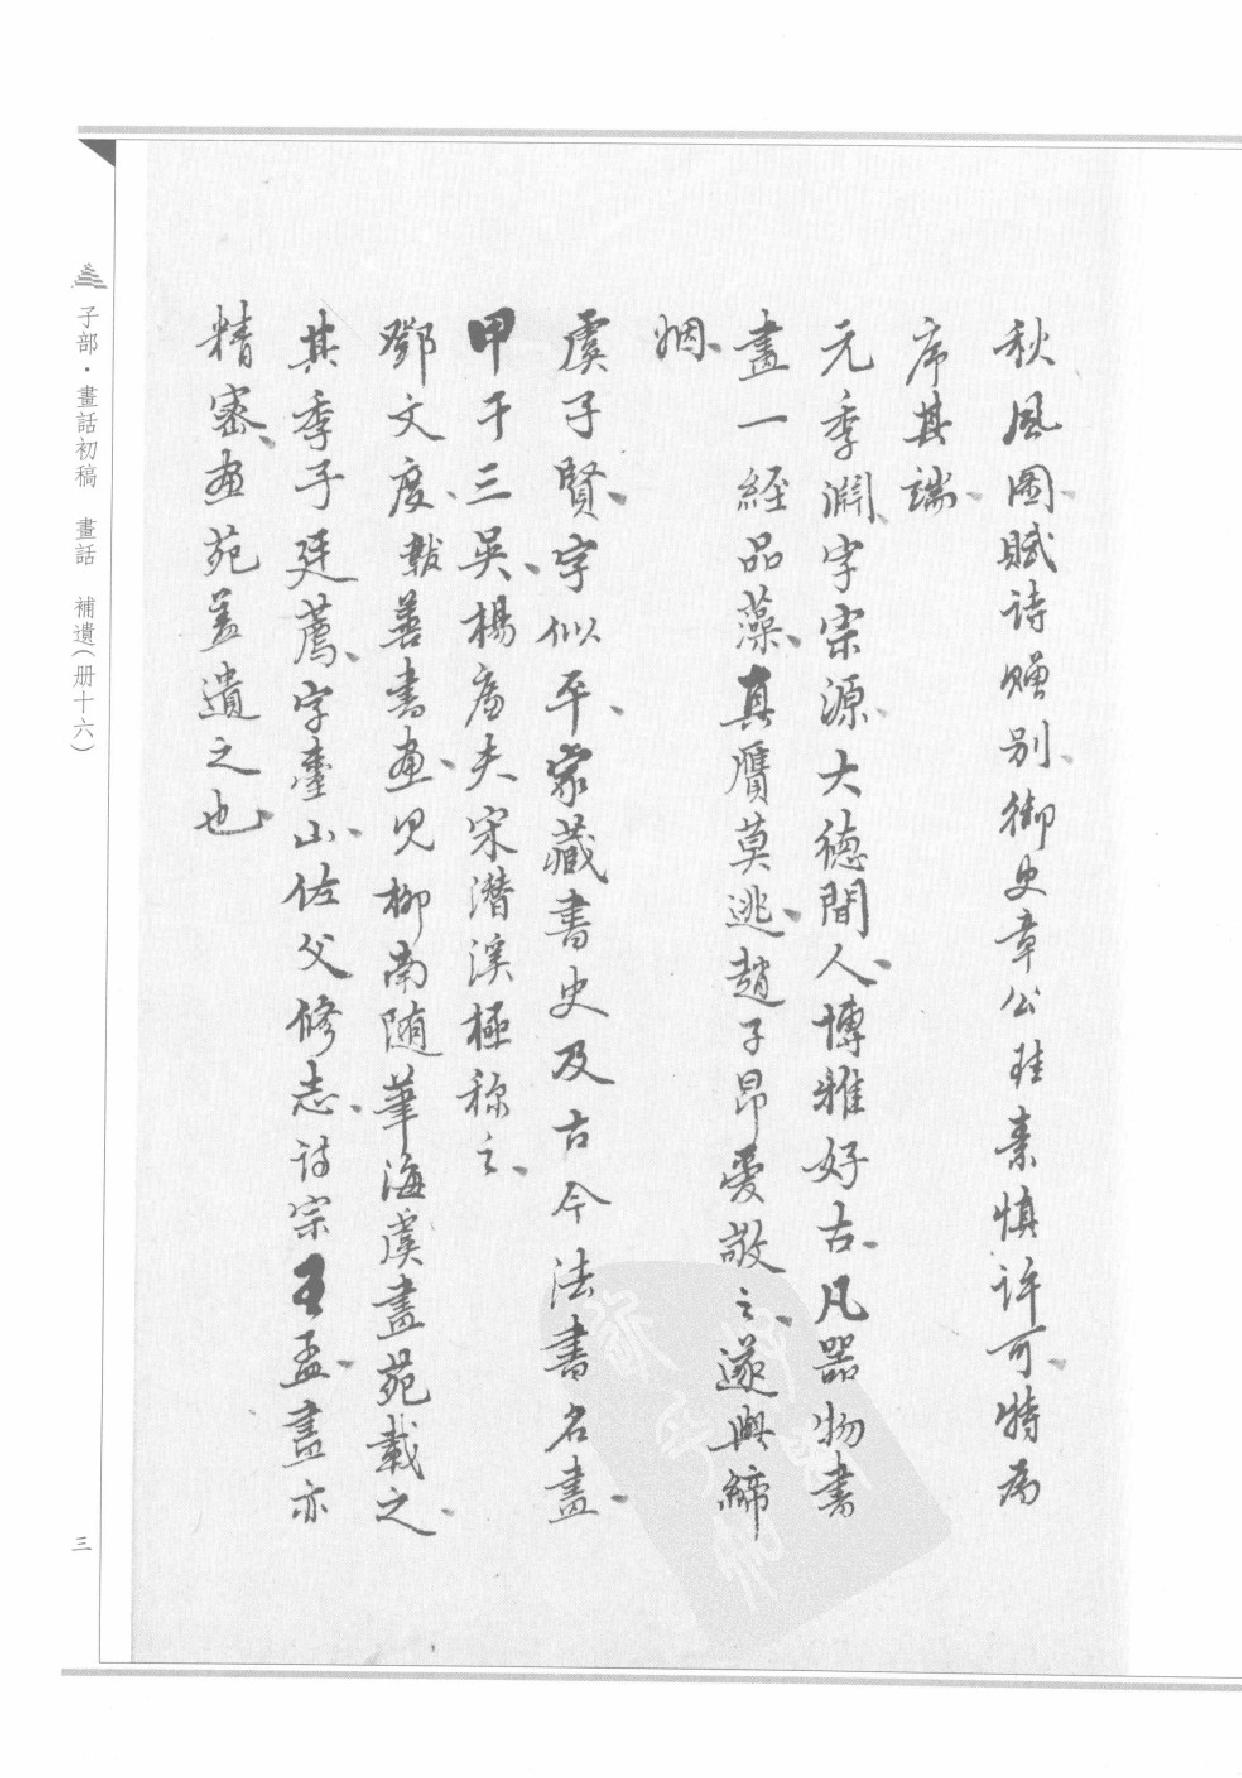 秋風圖、賦詩贈別、御史章公珪素慎許可、特為
序其端、
元季淵、字宗源、大德間人、博雅好古、凡器物書
畫一經品藻、真贋莫逃、趙子昂愛敬之、遂與締
姻、
虞子賢、字似平、家藏書史及古今法書名畫、
甲于三吳、楊廉夫宋潛溪極称之、
鄧文度、黻善書畫、見柳南随筆海虞畫苑載之、
其季子廷薦、字臺山、佐父修志、詩宗王孟、畫亦
精密、畫苑蓋遺之也、
子部・畫話初稿 畫話 補遺（册十六）
三